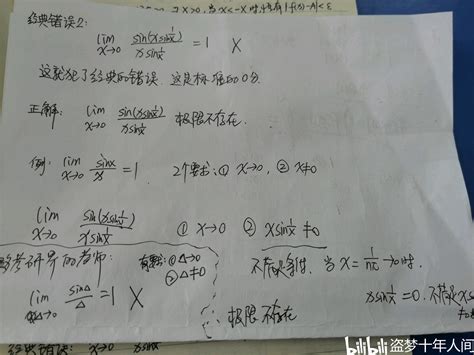 ∃X>0, 当x<-X时,恒有|f(x)-A|<ε
经典错误2:
lim x→0 sin(xsin1/x) / xsin1/x = 1 ×
这就犯了经典的错误, 这是标准的0分.
正解: lim x→0 sin(xsin1/x) / xsin1/x 极限不存在.
例: lim x→0 sinx/x = 1 2个要求: ① x→0, ② x≠0
lim x→0 sin(xsin1/x) / xsin1/x ① x→0 ② xsin1/x ≠0
考研界的老师: 有要求: ①△→0 ②△≠0 不满足条件, 当 x = 1/nπ →0时,
lim △→0 sin△/△ = 1 × xsin1/x = 0, 不满足 xs
≠0
∴ 极限不存在
经典错误:
bilibili 盗梦十年人间